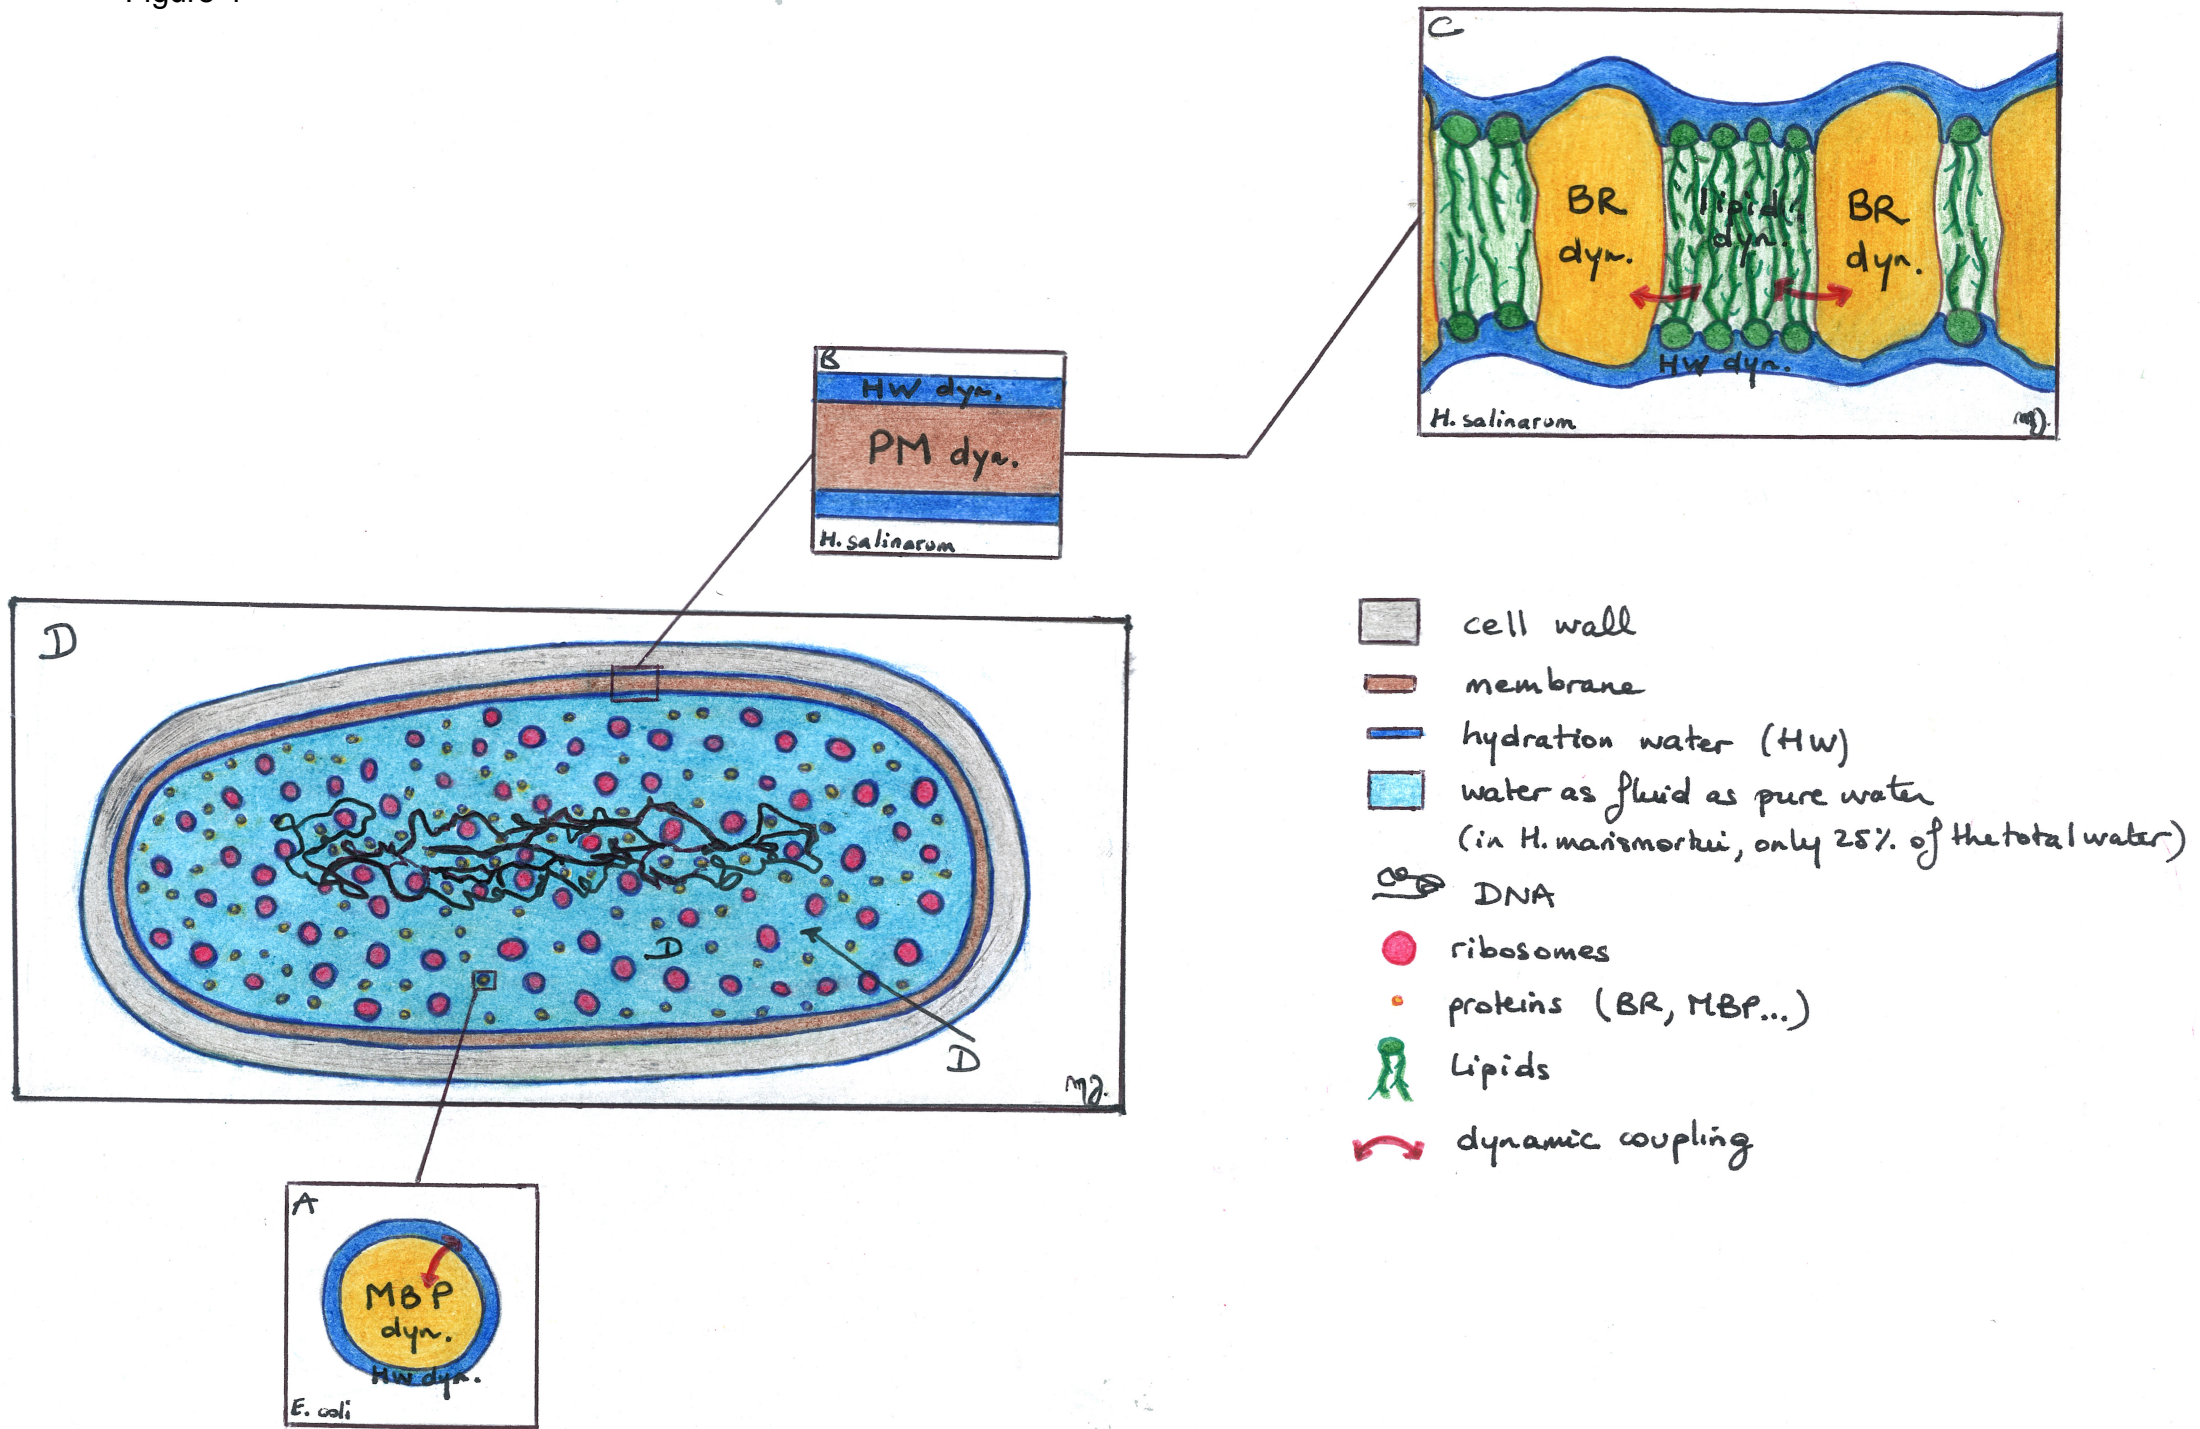 Figure
C
BR
dyn.
lipid
dyn.
BR
dyn.
HW dyn.
H. salinarum
B
HW dyn.
PM dyn.
H. salinarum
D
D
D
mg.
A
MBP
dyn.
HW dyn.
E. coli
cell wall
membrane
hydration water (HW)
water as fluid as pure water
(in H. marismortui, only 25% of the total water)
DNA
ribosomes
proteins (BR, MBP...)
Lipids
dynamic coupling